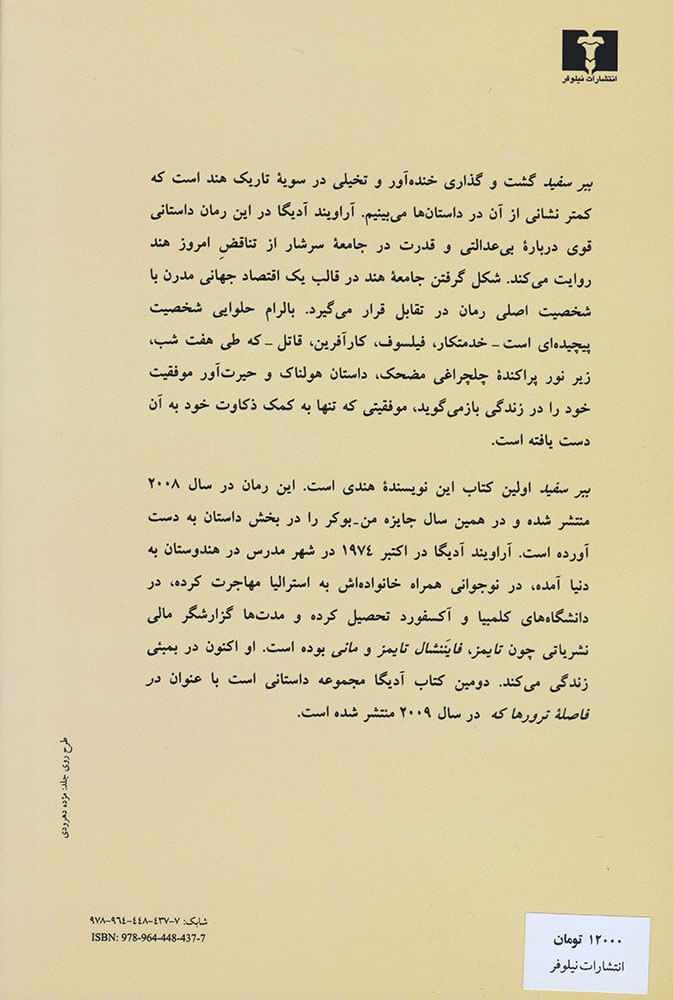 انتشارات نیلوفر
ببر سفید گشت و گذاری خنده‌آور و تخیلی در سویهٔ تاریک هند است که
کمتر نشانی از آن در داستان‌ها می‌بینیم. آراویند آدیگا در این رمان داستانی
قوی دربارهٔ بی‌عدالتی و قدرت در جامعهٔ سرشار از تناقضِ امروز هند
روایت می‌کند. شکل گرفتن جامعهٔ هند در قالب یک اقتصاد جهانی مدرن با
شخصیت اصلی رمان در تقابل قرار می‌گیرد. بالرام حلوایی شخصیت
پیچیده‌ای است ـ خدمتکار، فیلسوف، کارآفرین، قاتل ـ که طی هفت شب،
زیر نور پراکندهٔ چلچراغی مضحک، داستان هولناک و حیرت‌آور موفقیت
خود را در زندگی بازمی‌گوید، موفقیتی که تنها به کمک ذکاوت خود به آن
دست یافته است.
ببر سفید اولین کتاب این نویسندهٔ هندی است. این رمان در سال ۲۰۰۸
منتشر شده و در همین سال جایزه من‌ـ‌بوکر را در بخش داستان به دست
آورده است. آراویند آدیگا در اکتبر ۱۹۷٤ در شهر مدرس در هندوستان به
دنیا آمده، در نوجوانی همراه خانواده‌اش به استرالیا مهاجرت کرده، در
دانشگاه‌های کلمبیا و آکسفورد تحصیل کرده و مدت‌ها گزارشگر مالی
نشریاتی چون تایمز، فایَننشال تایمز و مانی بوده است. او اکنون در بمبئی
زندگی می‌کند. دومین کتاب آدیگا مجموعه داستانی است با عنوان در
فاصلهٔ ترورها که در سال ۲۰۰۹ منتشر شده است.
طرح روی جلد: مژده دهرودی
شابک: ۷-٤۳۷-٤٤۸-۹٦٤-۹۷۸
ISBN: 978-964-448-437-7
۱۲۰۰۰ تومان
انتشارات نیلوفر